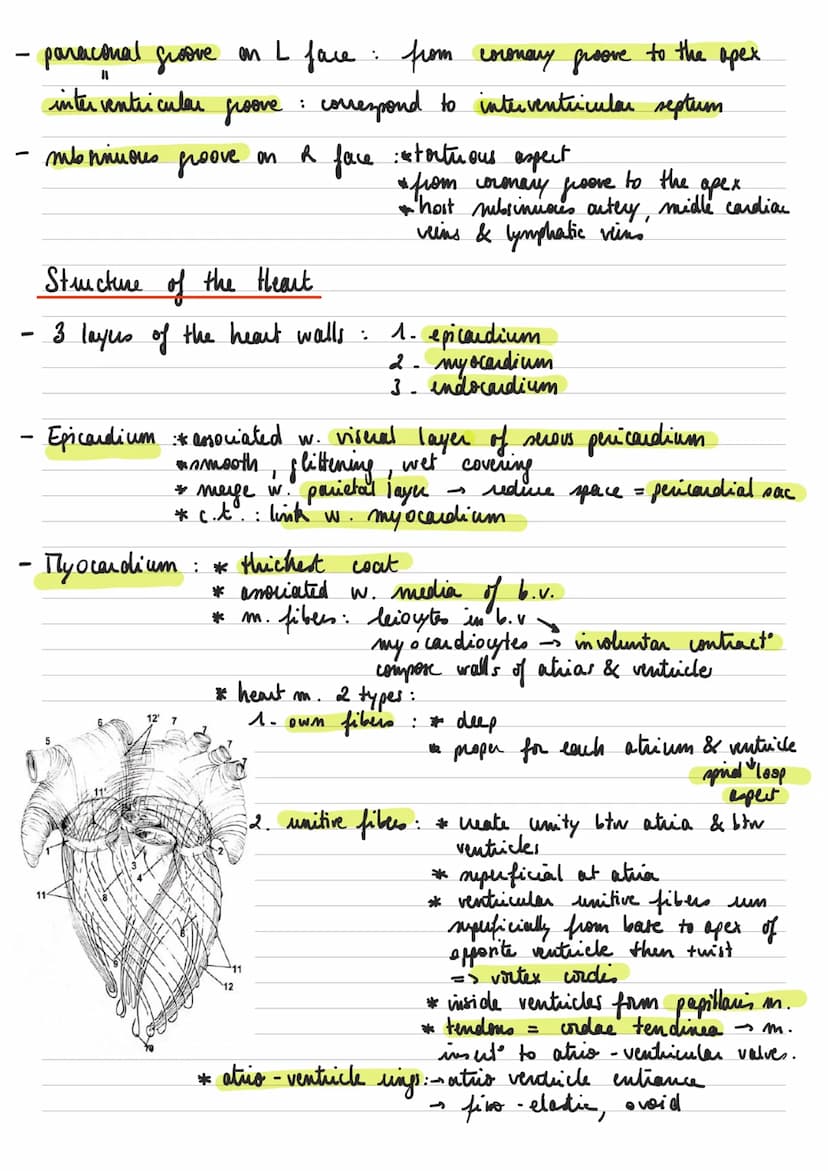 - paraconal groove on L face : from coronary groove to the apex
=
interventricular groove : correspond to interventricular septum
- subsinuous groove on R face : * tortuous aspect
* from coronary groove to the apex
* host subsinuous artery, midle cardiac
veins & lymphatic veins
Structure of the Heart
- 3 layers of the heart walls : 1 - epicardium
2 - myocardium
3 - endocardium
- Epicardium : * associated w. visceral layer of serous pericardium
* smooth, glittening, wet covering
* merge w. parietal layer → reduce space = pericardial sac
* c.t. : link w. myocardium
- Myocardium : * thickest coat
* associated w. media of b.v.
* m. fibers : leiocytes in b.v ↘
myocardiocytes → involuntar contract°
compose walls of atrias & ventricle
* heart m. 2 types :
1 - own fibers : * deep
* proper for each atrium & ventricle
↓
spiral loop
aspect
2. unitive fibers : * create unity btw atria & btw
ventricles
* superficial at atria
* ventricular unitive fibers run
superficially from base to apex of
opposite ventricle then twist
=> vortex cordis
* inside ventricles form papillaris m.
* tendons = cordae tendinea → m.
insert° to atrio - ventricular valves.
* atrio - ventricle rings : → atrio ventricle entrance
→ fibro - elastic, ovoid
5 6 12' 7 7 7 7
11'
1 2 3 4
11 8 6
9 11
12
10